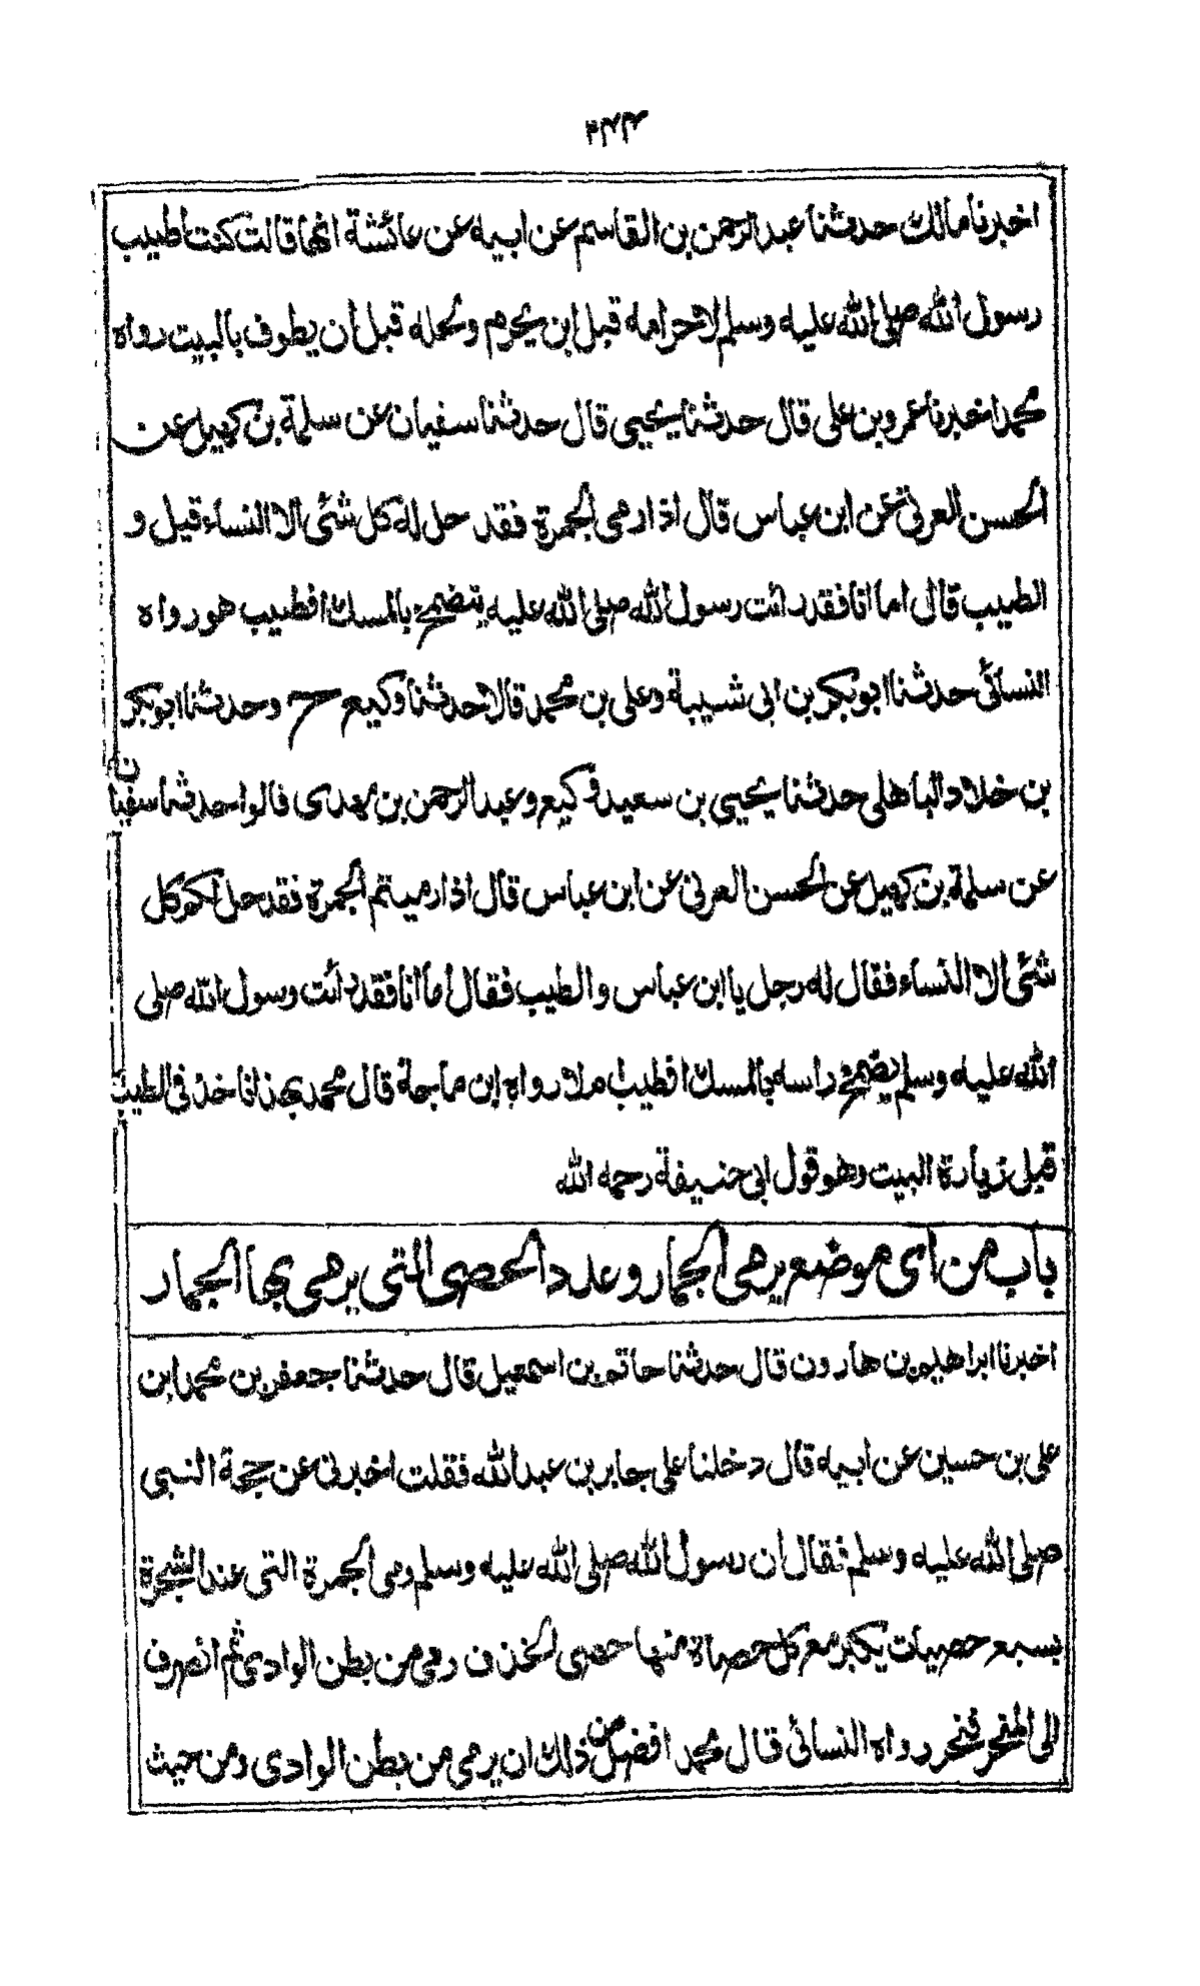 ۲۴۴
اخبرنا مالك حدثنا عبد الرحمن بن القاسم عن ابيه عن عائشة انها قالت كنت اطيب
رسول الله صلى الله عليه وسلم لاحرامه قبل ان يحرم ولحله قبل أن يطوف بالبيت رواه
محمد اخبرنا عمرو بن على قال حدثنا يحيى قال حدثنا سفيان عن سلمة بن كهيل عن
الحسن العرنى عن ابن عباس قال اذا رمى الجمرة فقد حل له كل شئى الا النساء قيل و
الطيب قال اما انا فقد رائت رسول الله صلى الله عليه يتضمخ بالمسك افطيب هو رواه
النسائى حدثنا ابو بكر بن ابى شيبة وعلى بن محمد قالا حدثنا وكيع ح وحدثنا ابو بكر
بن خلاد الباهلى حدثنا يحيى بن سعيد وكيع وعبد الرحمن بن مهدى قالوا حدثنا سفيان
عن سلمة بن كهيل عن الحسن العرنى عن ابن عباس قال اذا رميتم الجمرة فقد حل لكم كل
شئى الا النساء فقال له رجل يا ابن عباس والطيب فقال أما انا فقد رائت رسول الله صلى
الله عليه وسلم يضمخ راسه بالمسك افطيب ام لا رواه ابن ماجة قال محمد بهذا ناخذ فى الطيب
قبل زيارة البيت وهو قول ابى حنيفة رحمه الله
باب من أى موضع يرمى الجمار وعدد الحصى التى يرمى بها الجمار
اخبرنا ابراهيم بن هارون قال حدثنا حاتم بن اسمعيل قال حدثنا جعفر بن محمد ابن
على بن حسين عن ابيه قال دخلنا على جابر بن عبد الله فقلت اخبرنى عن حجة النبى
صلى الله عليه وسلم فقال ان رسول الله صلى الله عليه وسلم رمى الجمرة التى عند الشجرة
بسبع حصيات يكبر مع كل حصاة منها حصى الخذف رمى من بطن الوادى ثم انصرف
الى المنحر فنحر رواه النسائى قال محمد افضل من ذلك ان يرمى من بطن الوادى ومن حيث